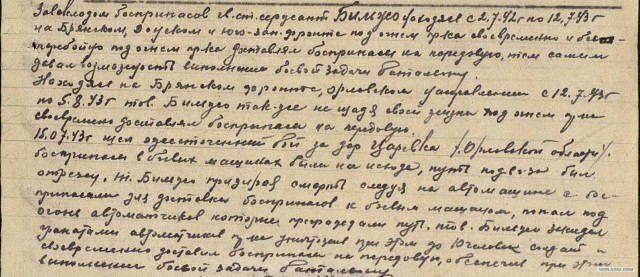 Зав. складом боеприпасов гв. ст. сержант Бимжо находясь с 2.7.42г по 12.7.43г
на Брянском, Донском и Юго-Зап. фронте под огнем пр-ка своевременно и бес-
перебойно под огнем пр-ка доставлял боеприпасы на передовую, тем самым
давал возможность выполнению боевой задачи батальону.
Находясь на Брянском фронте, Орловском направлении с 12.7.43г
по 5.8.43г тов. так-же не щадя своей жизни под огнем
своевременно доставлял боеприпасы на передовую.
15.07.43г шел ожесточенный бой за дер. Царевка /Орловской области/.
боеприпасы в боевых машинах были на исходе, путь подвоза был
отрезан. т. презирая смерть следуя на автомашине с бое-
припасами для доставки боеприпасов к боевым машинам, попал под
огонь автоматчиков которые преграждали путь. тов. закидал
гранатами автоматчиков пр-ка уничтожив при этом до 10 человек солдат
своевременно доставил боеприпасы на передовую, обеспечив при этом
выполнение боевой задачи батальону